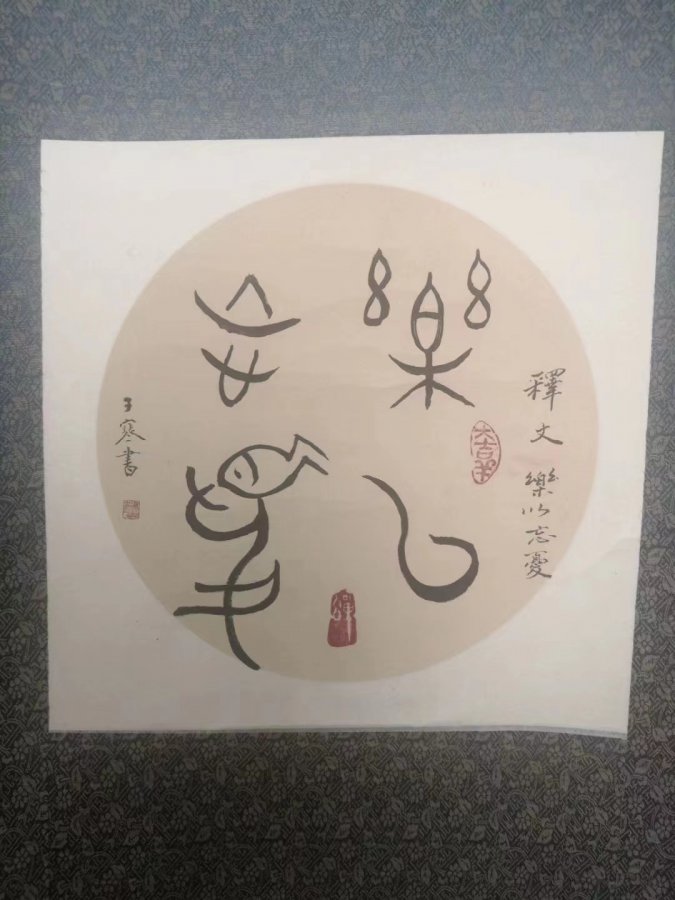 釋文 樂以忘憂
大吉羊
樂以
忘憂
子寒書